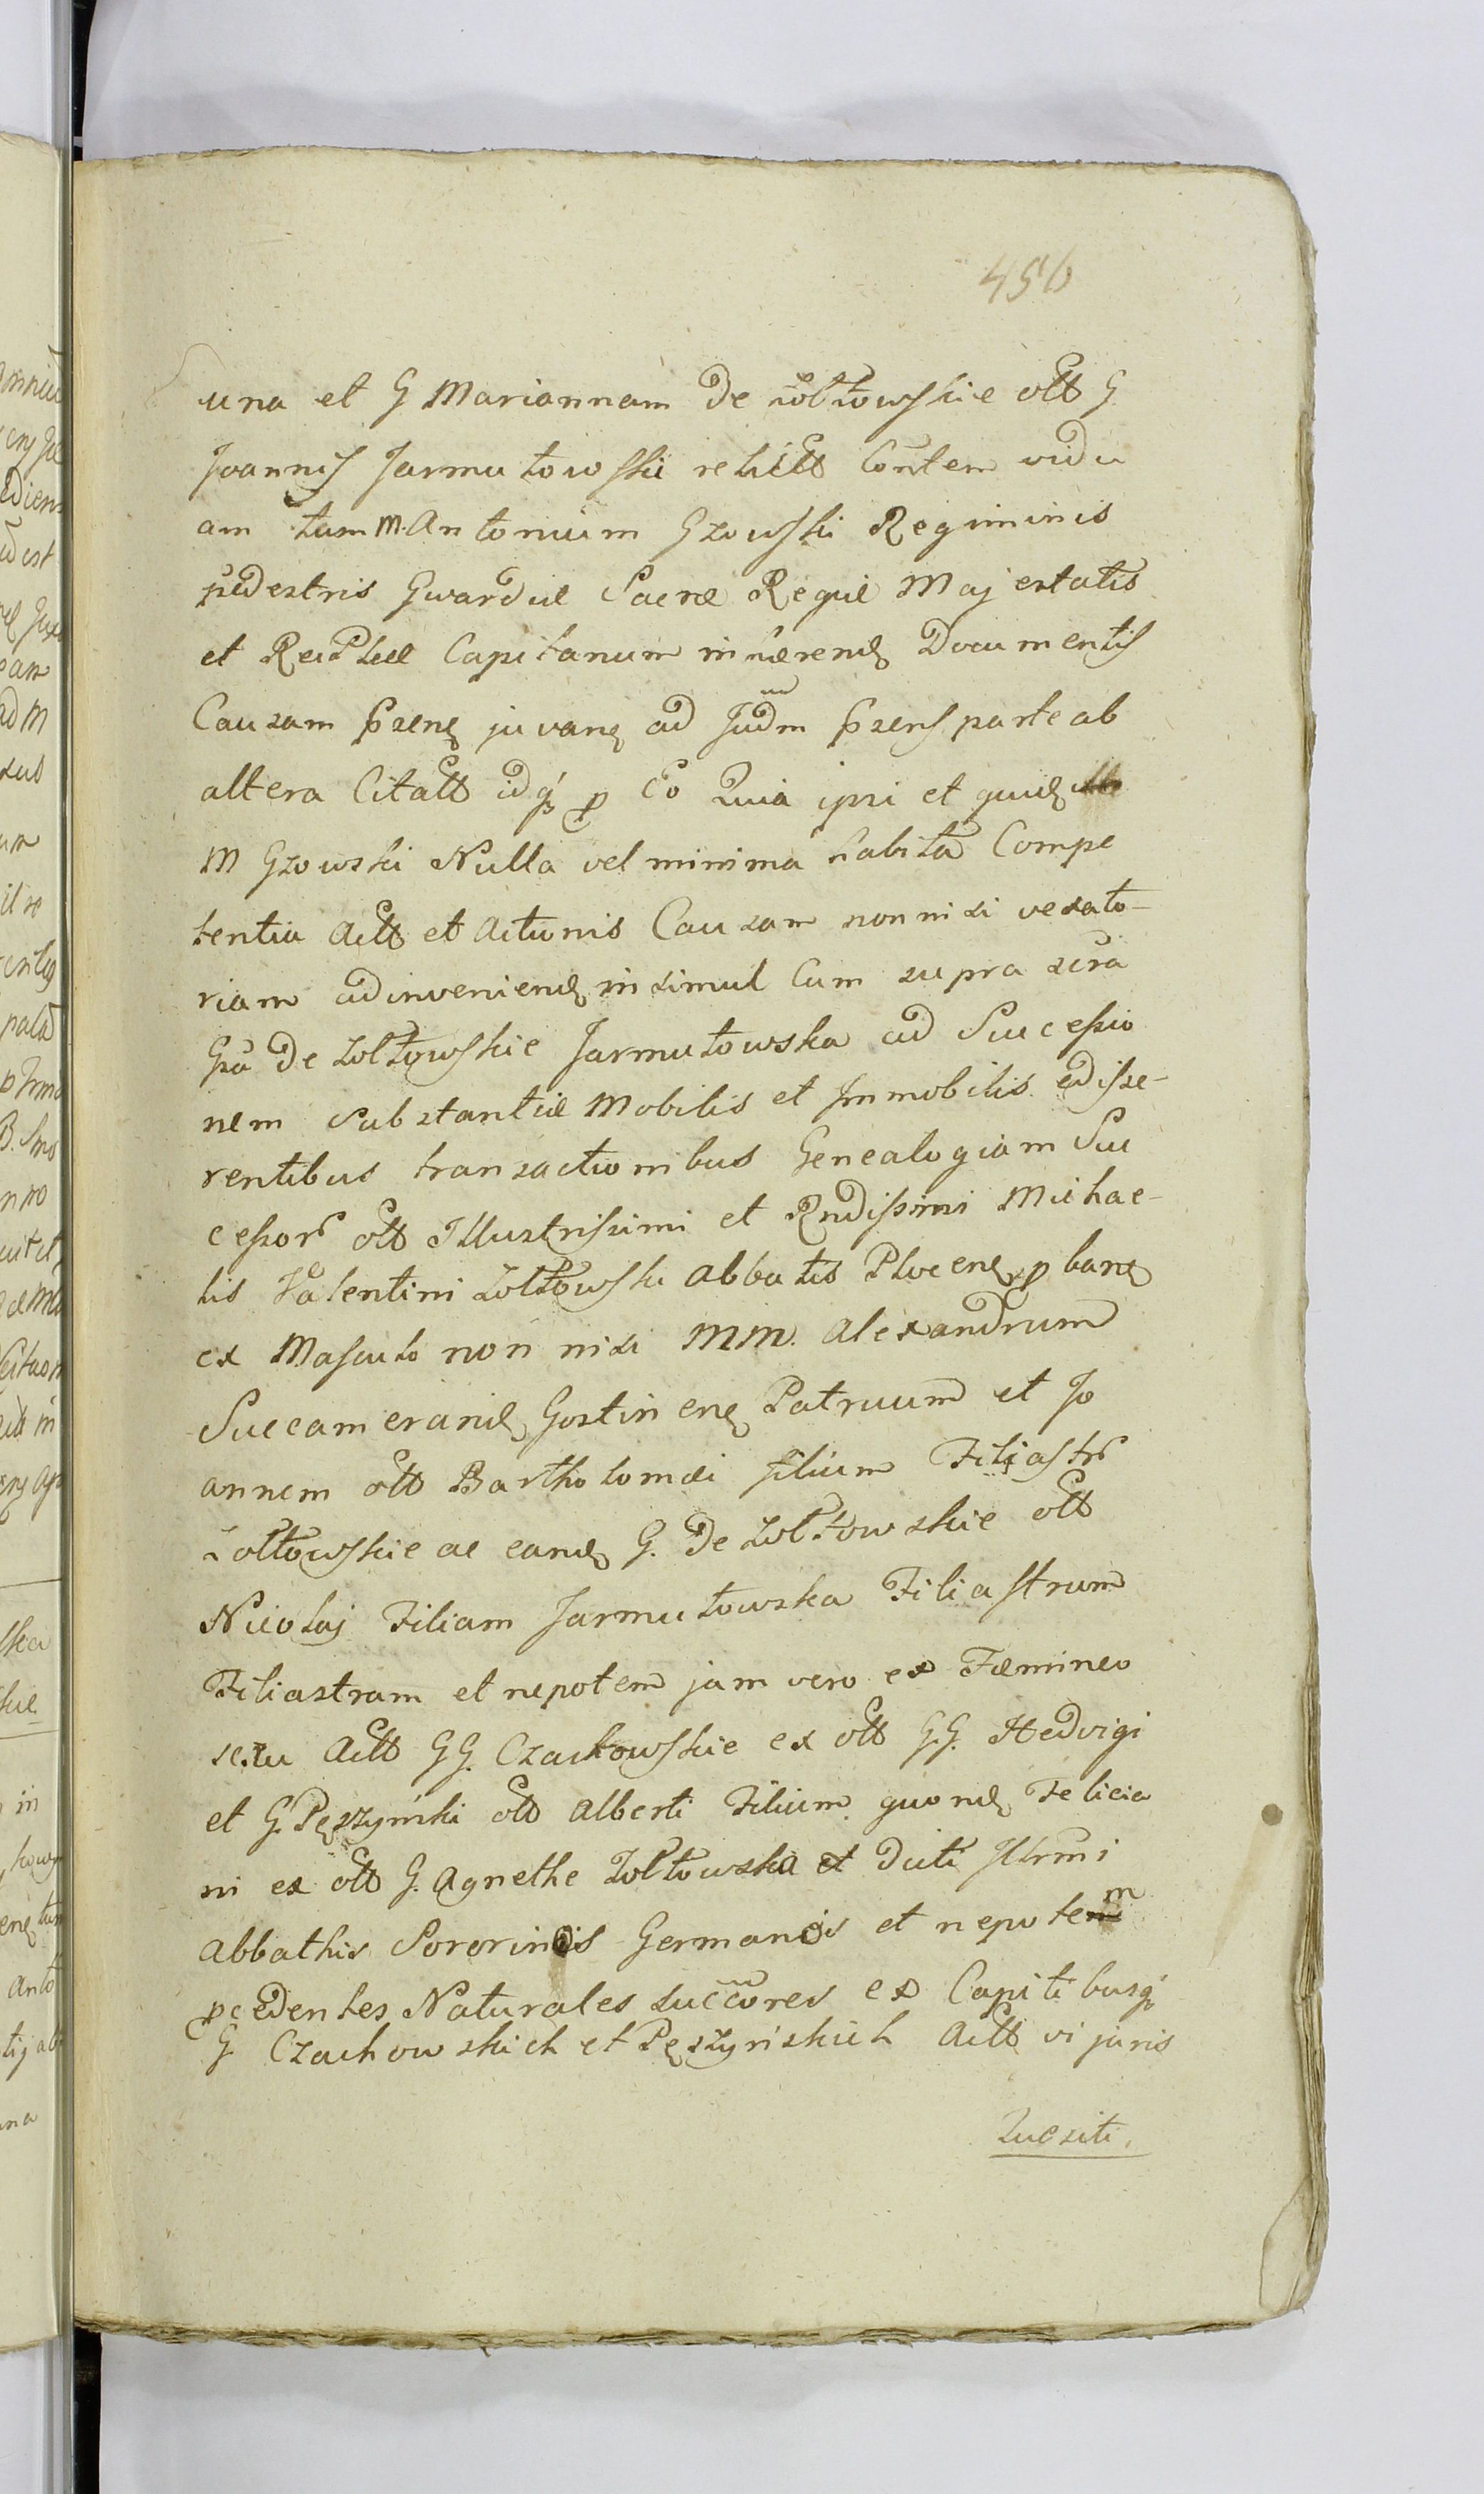 456
una et G Mariannam de Żołtowskie olt G
Joannis Jarmutowski relictt Contem vidu
am tum M. Antonium Gzowski Regiminis
pedestris Gwardiæ Sacræ Regiæ Majestatis
et ReiPlcæ Capitanum inhærend Documentis
Causam pzens juvans ad Judm pzens parte ab
altera Citatt idq p Eo Quia ipsi et quid
M Gzowski Nulla vel minima habita Compe
tentia Actt et Actionis Causam nonnisi vexato-
riam adinveniend insimul Cum supra scra
Gsa de Zołtowskie Jarmutowska ad Successio
nem substantiæ Mobilis et Immobilis edisse-
rentibus transactionibus Genealogiam Suc
cessor olt Illustrissimi et Rndissimi Michae-
lis Valentini Zołtowski Abbatis Plocens pbans
ex Masculo non nisi MM. Alexandrum
Succamerarid Gostinens Patruum et Jo
annem olt Bartholomæi filium Filiastr
Żołtowskie ac eand G. de Zołtowskie olt
Nicolaj Filiam Jarmutowska Filiastrum
Filiastram et nepotem jam vero ex Fæmineo
sexu Actt GG. Czachowskie ex olt G.G. Hedvigi
et G. Pęszyński olt Alberti Filium quond Felicia
ni ex olt G. Agnethe Zołtowska et Dicti Illrmi
Abbathis Sororinos Germanos et nepotem
pcedentes Naturales succores ex Capitibusq
G Czachowskich et Pęszyńskich Actt vi juris
Quesiti.